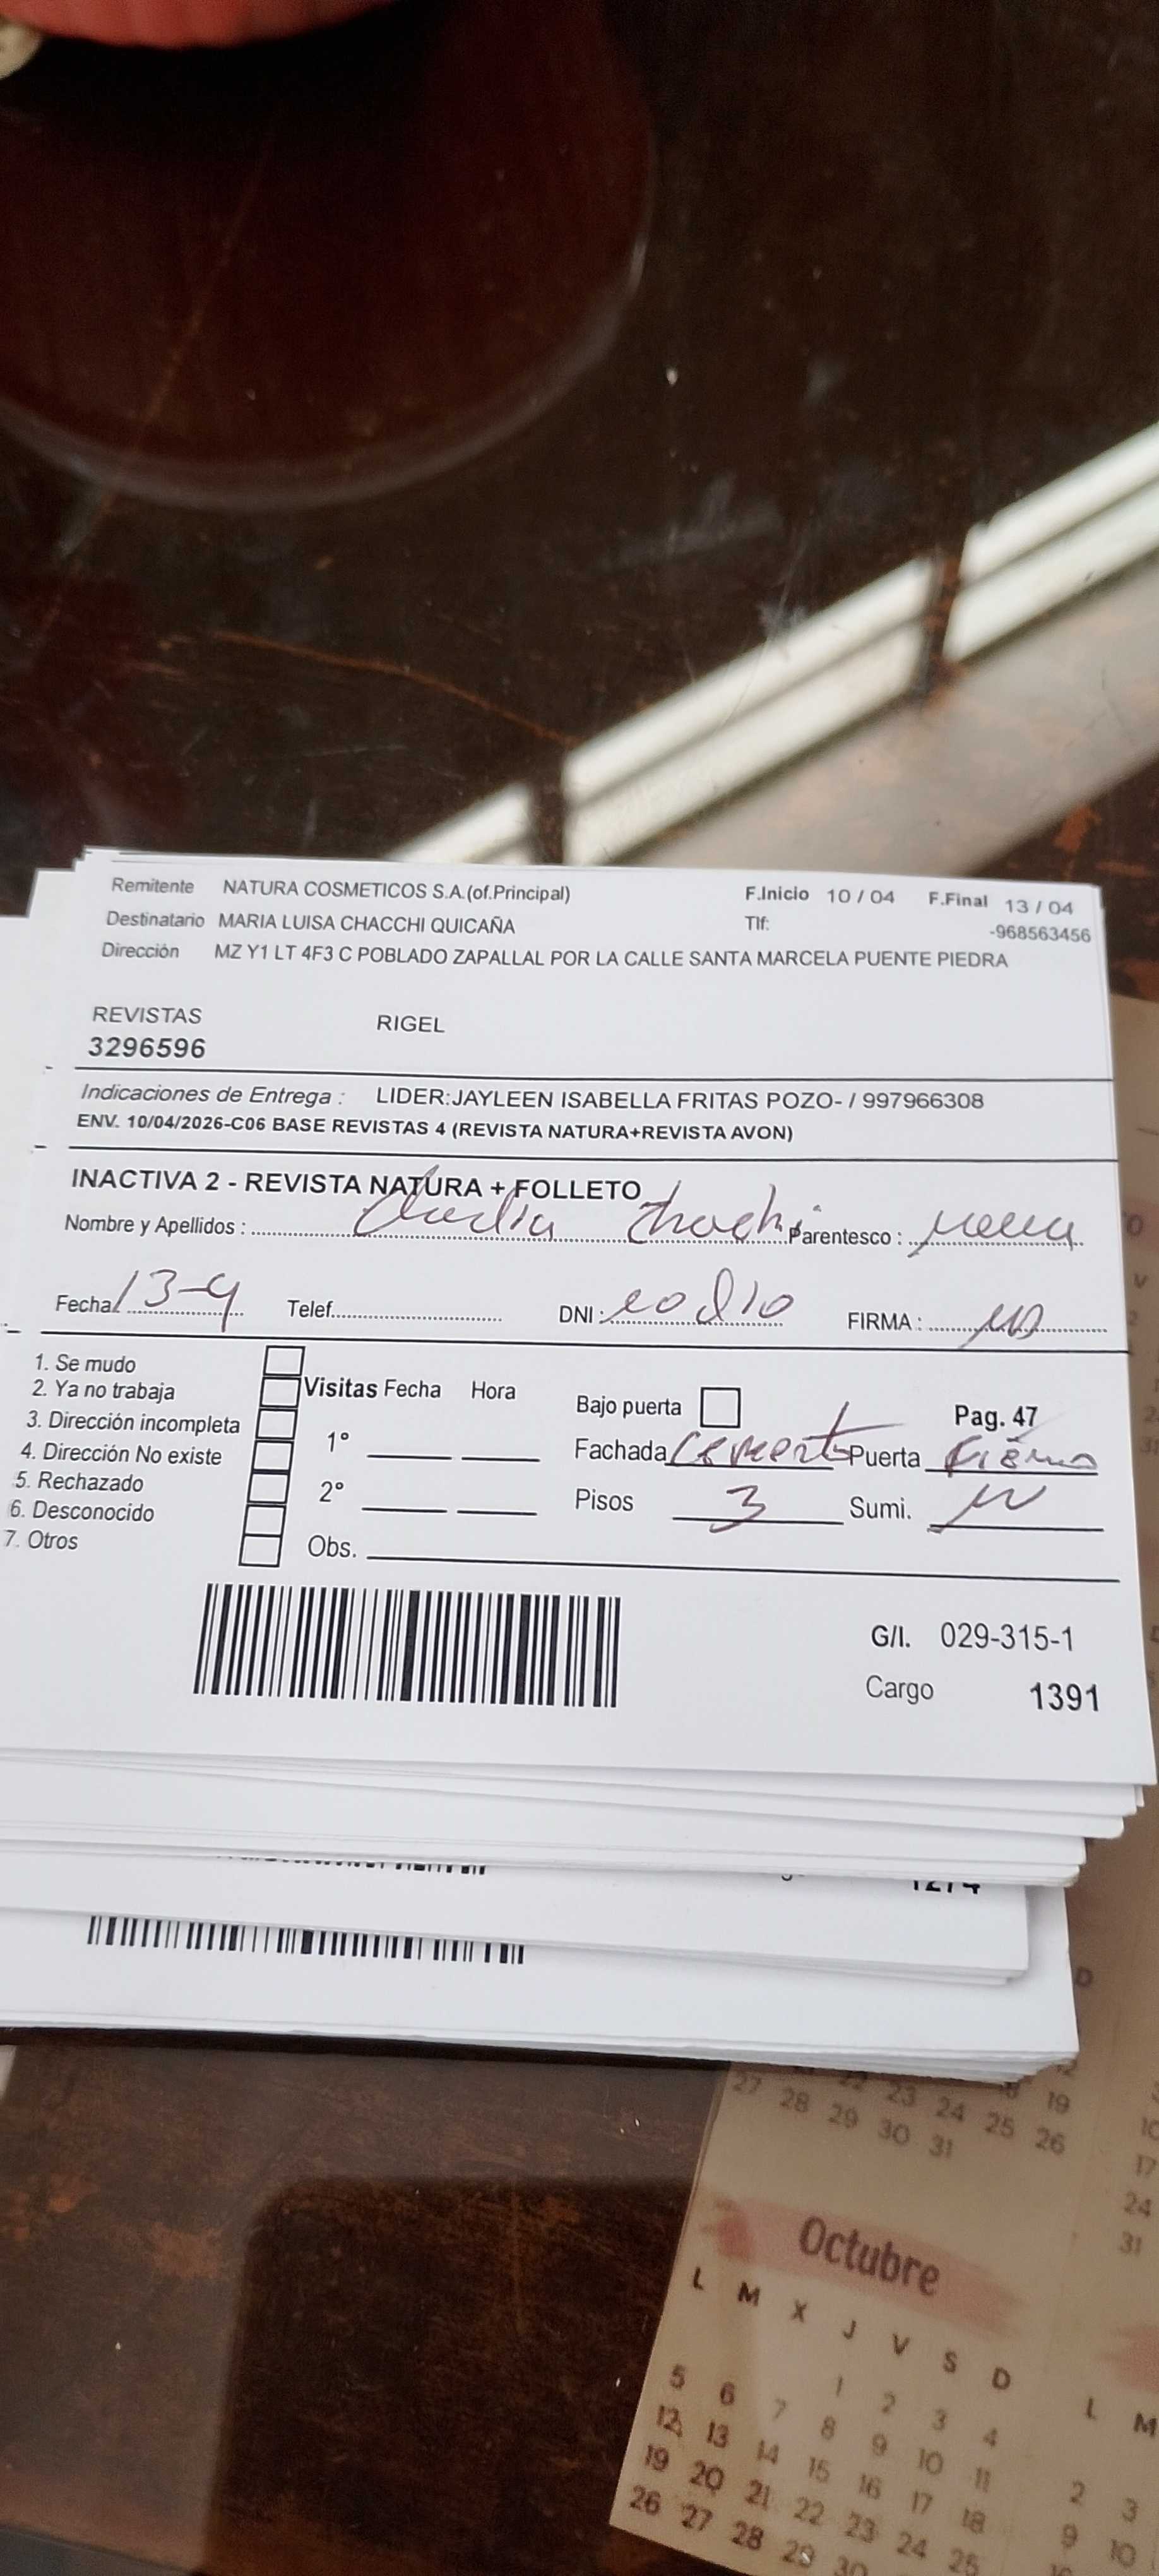 Remitente NATURA COSMETICOS S.A.(of.Principal) F.Inicio 10 / 04 F.Final 13 / 04
Destinatario MARIA LUISA CHACCHI QUICAÑA Tlf: -968563456
Dirección MZ Y1 LT 4F3 C POBLADO ZAPALLAL POR LA CALLE SANTA MARCELA PUENTE PIEDRA
REVISTAS RIGEL
3296596
Indicaciones de Entrega : LIDER:JAYLEEN ISABELLA FRITAS POZO- / 997966308
ENV. 10/04/2026-C06 BASE REVISTAS 4 (REVISTA NATURA+REVISTA AVON)
INACTIVA 2 - REVISTA NATURA + FOLLETO
Nombre y Apellidos : Parentesco :
Fecha: 13-4 Telef. DNI : FIRMA :
1. Se mudo
2. Ya no trabaja Visitas Fecha Hora Bajo puerta Pag. 47
3. Dirección incompleta 1° Fachada Cemento Puerta
4. Dirección No existe
5. Rechazado 2° Pisos 3 Sumi.
6. Desconocido
7. Otros Obs.
G/I. 029-315-1
Cargo 1391
1274
27 28 22 23 24 18 19
29 30 31 25 26
Octubre
L M X J V S D
1 2 3 4
5 6 7 8 9 10 11
12 13 14 15 16 17 18
19 20 21 22 23 24 25
26 27 28 29 30
L M
2 3
9 10
17
24
31